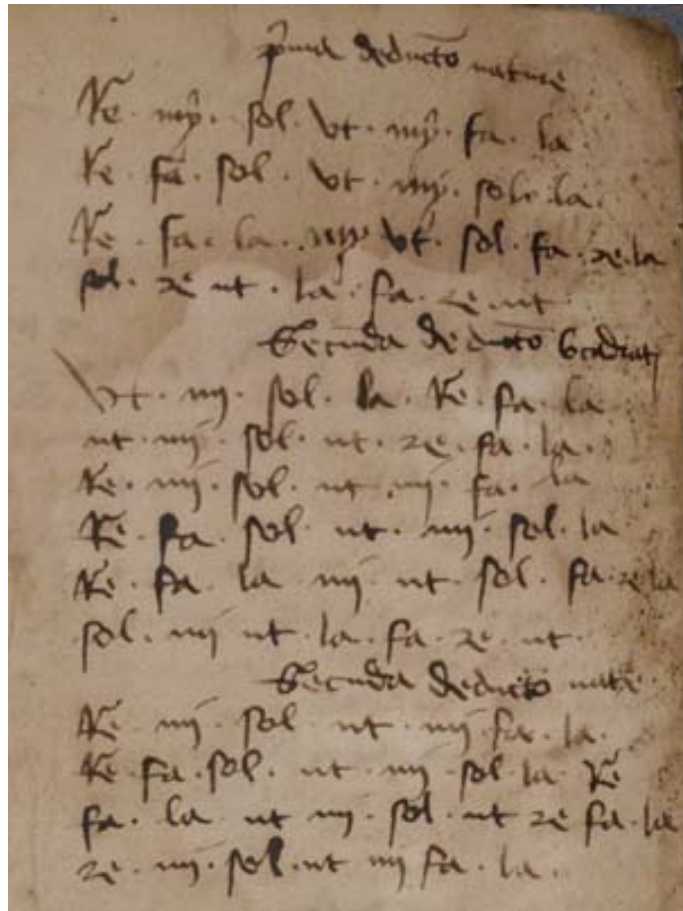 p̄ma deducto᷑ nature
Re · mẏ · sol · Vt · mẏ · fa · la
Re · fa · sol · vt · mẏ · sol · la ·
Re · fa · la · mẏ Vt · sol · fa · re · la
sol · re ut · la · fa · re · ut
Secūda deducto᷑ bq̄drati
Vt · mi · sol · la · Re · fa · la
ut · mi · sol · ut · re · fa · la ·
Re · mi · sol · ut · mi · fa · la
Re · fa · sol · ut · mi · sol · la
Re · fa · la mi · ut · sol · fa · re · la
sol · mi ut · la · fa · re · ut ·
Secūda deducto᷑ natē
Re · mi · sol · ut · mi fa · la ·
Re · fa · sol · ut · mi · sol · la Re
fa · la ut mi · sol · ut re fa · la
re · mi · sol · ut mi fa · la ·